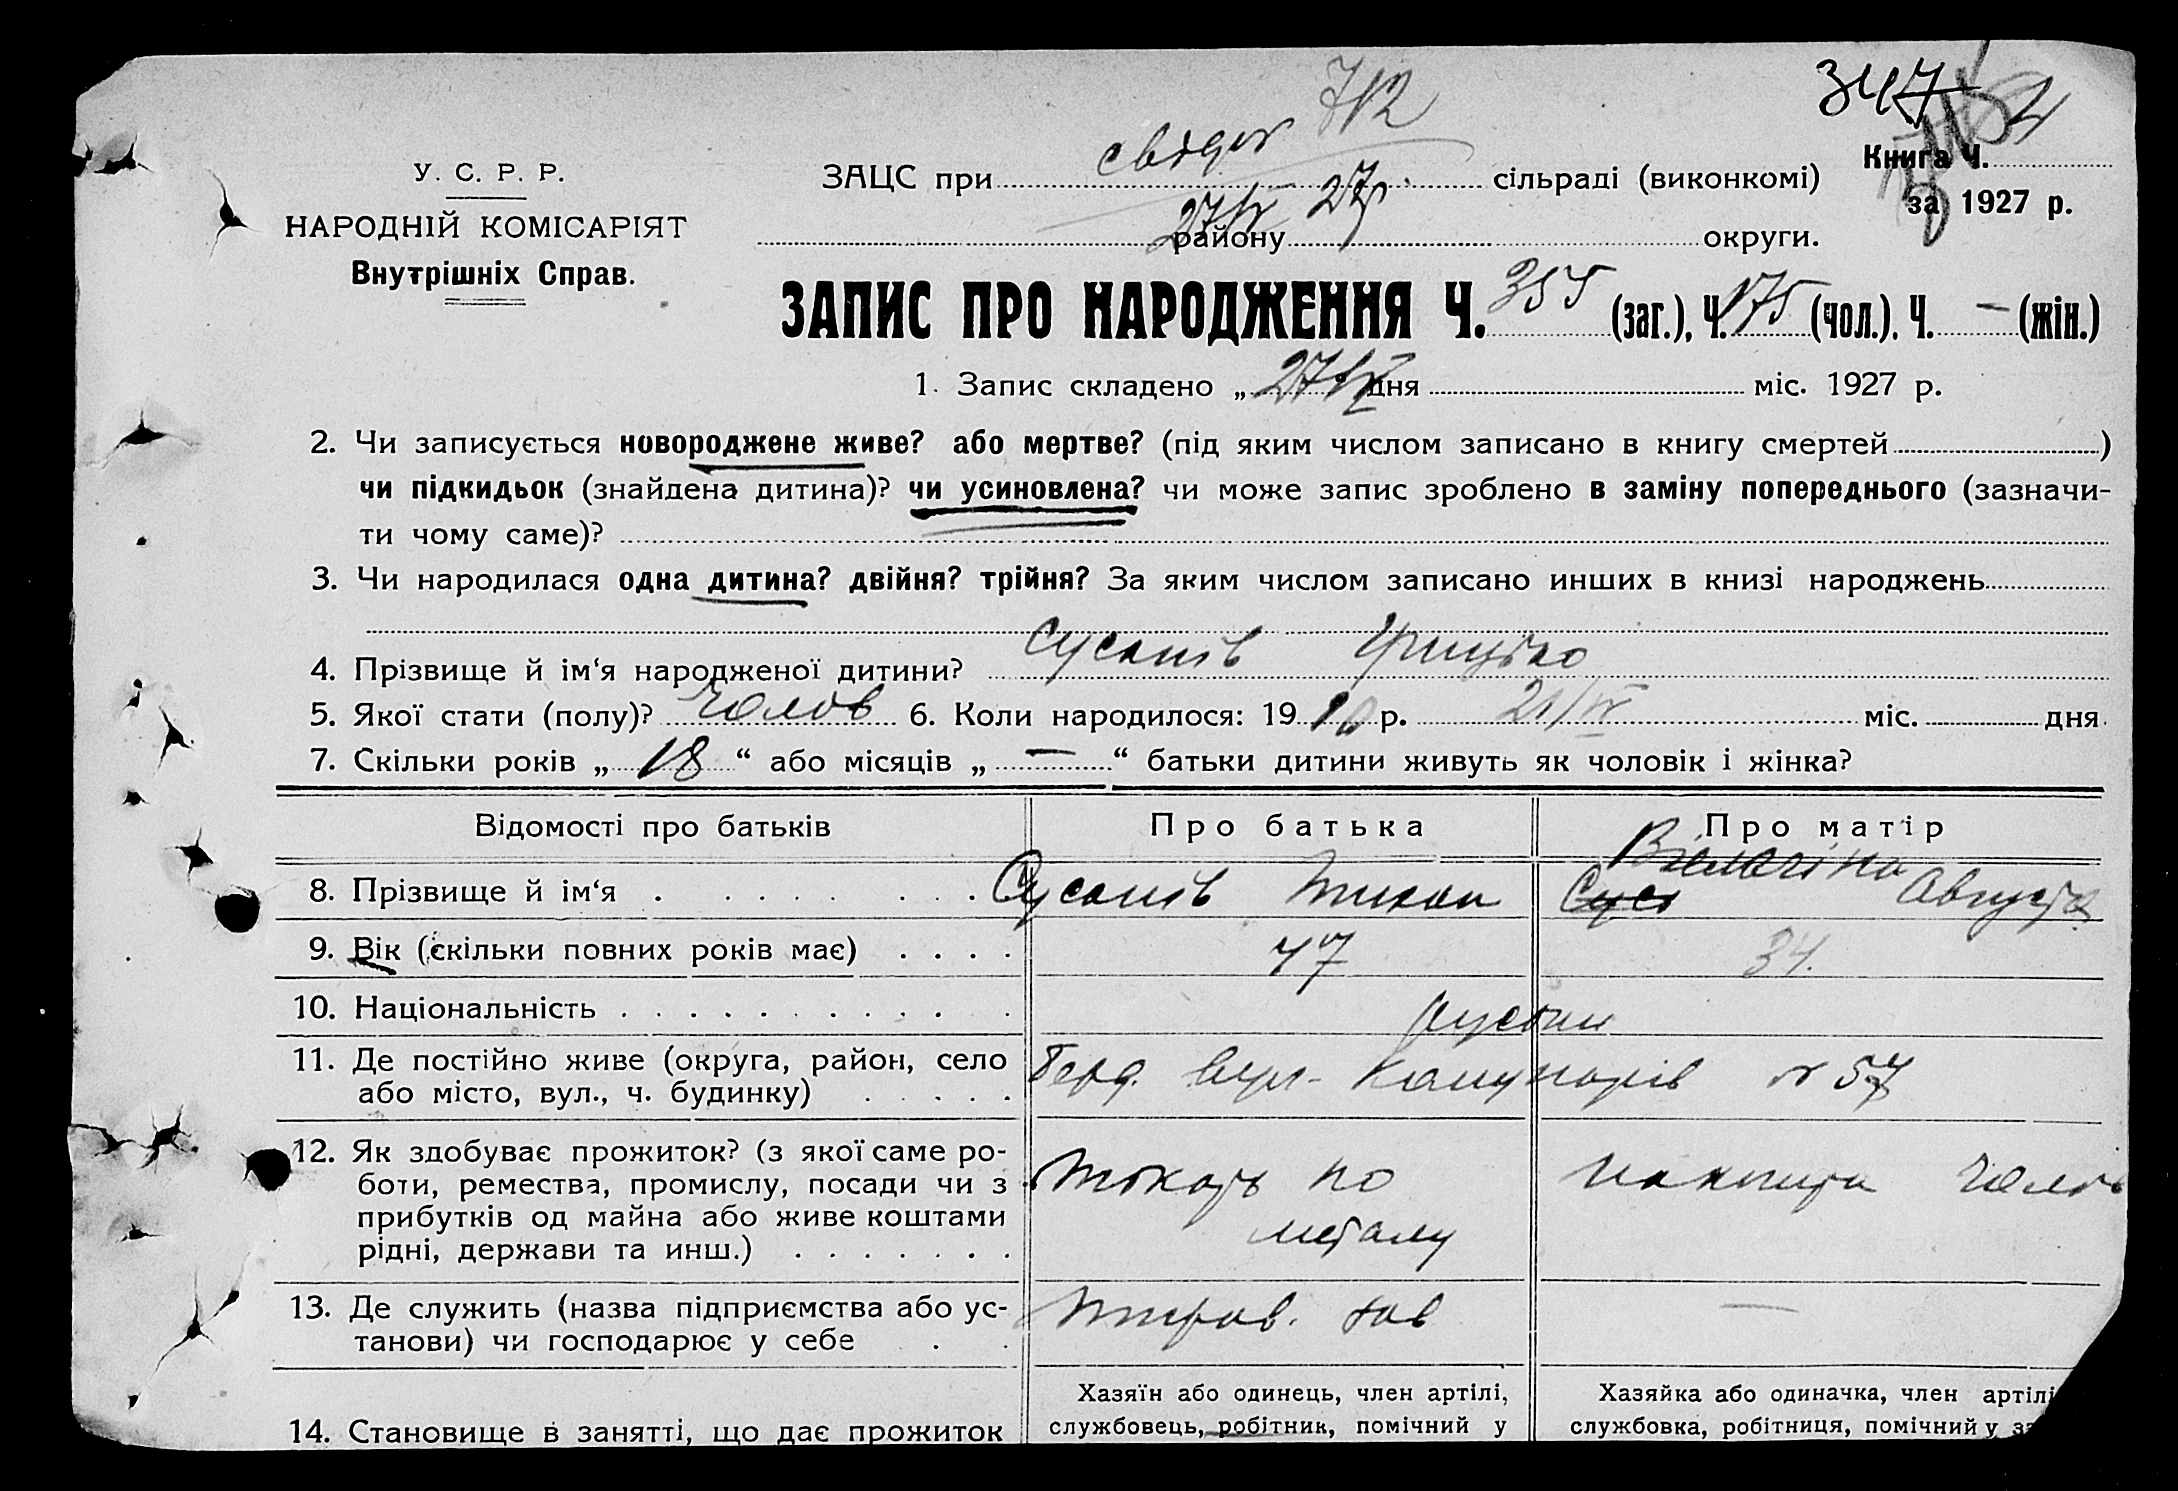 347
712
свідот
У. С. Р. Р.
ЗАЦС при сільраді (виконкомі)
Книга Ч.
за 1927 р.
27/IV 27р.
НАРОДНІЙ КОМІСАРІЯТ
району округи.
Внутрішніх Справ.
ЗАПИС ПРО НАРОДЖЕННЯ Ч. 355 (заг.), Ч. 175 (чол.). Ч. — (жін.)
1. Запис складено „ 27/IV дня міс. 1927 р.
2. Чи записується новороджене живе? або мертве? (під яким числом записано в книгу смертей )
чи підкидьок (знайдена дитина)? чи усиновлена? чи може запис зроблено в заміну попереднього (зазначи-
ти чому саме)?
3. Чи народилася одна дитина? двійня? трійня? За яким числом записано инших в книзі народжень
4. Прізвище й ім‘я народженої дитини? Сусанів Грицько
5. Якої стати (полу)? Чолов 6. Коли народилося: 19 10 р. 21/IV міс. дня
7. Скільки років „ 18 “ або місяців „ — “ батьки дитини живуть як чоловік і жінка?
Відомості про батьків Про батька Про матір
8. Прізвище й ім‘я Сусанів Тихон Августа
9. Вік (скільки повних років має) 47 34.
10. Національність русини
11. Де постійно живе (округа, район, село Берд. вул. Комунарів № 57
або місто, вул., ч. будинку)
12. Як здобуває прожиток? (з якої саме ро- токарь по чолов
боти, ремества, промислу, посади чи з
прибутків од майна або живе коштами металу
рідні, держави та инш.)
13. Де служить (назва підприємства або ус- зав —
танови) чи господарює у себе
14. Становище в занятті, що дає прожиток
Хазяїн або одинець, член артілі,
службовець, робітник, помічний у
Хазяйка або одиначка, член артілі
службовка, робітниця, помічний у за